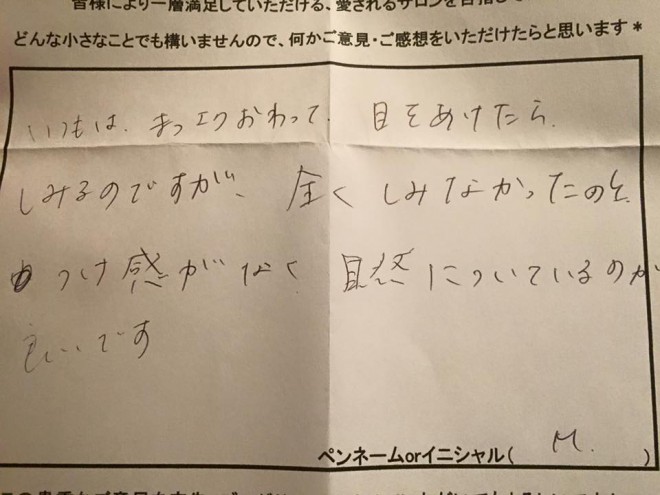 皆様により一層満足していただける、愛されるサロンを目指して
どんな小さなことでも構いませんので、何かご意見・ご感想をいただけたらと思います*
いつもは、まつエクおわって、目をあけたら、
しみるのですが、全くしみなかったのと、
つけ感がなく自然についているのが
良いです
ペンネームorイニシャル( M. )